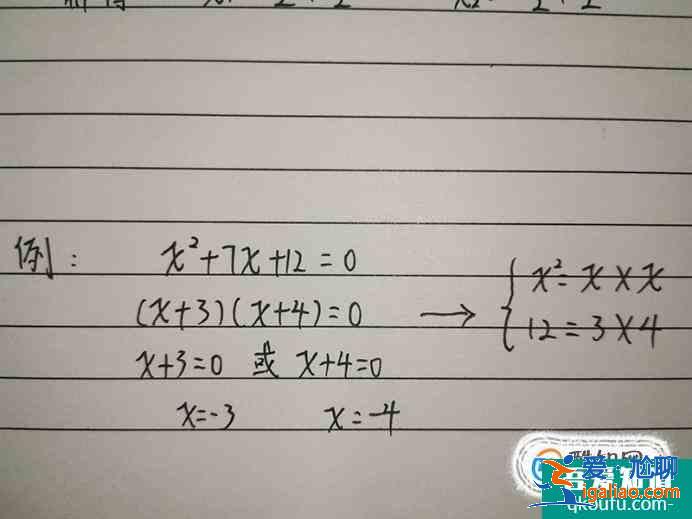 例: x²+7x+12=0
(x+3)(x+4)=0 → { x²=x×x
12=3×4
x+3=0 或 x+4=0
x=-3 x=-4
爱尬聊
igaliao.com
qksufu.com-